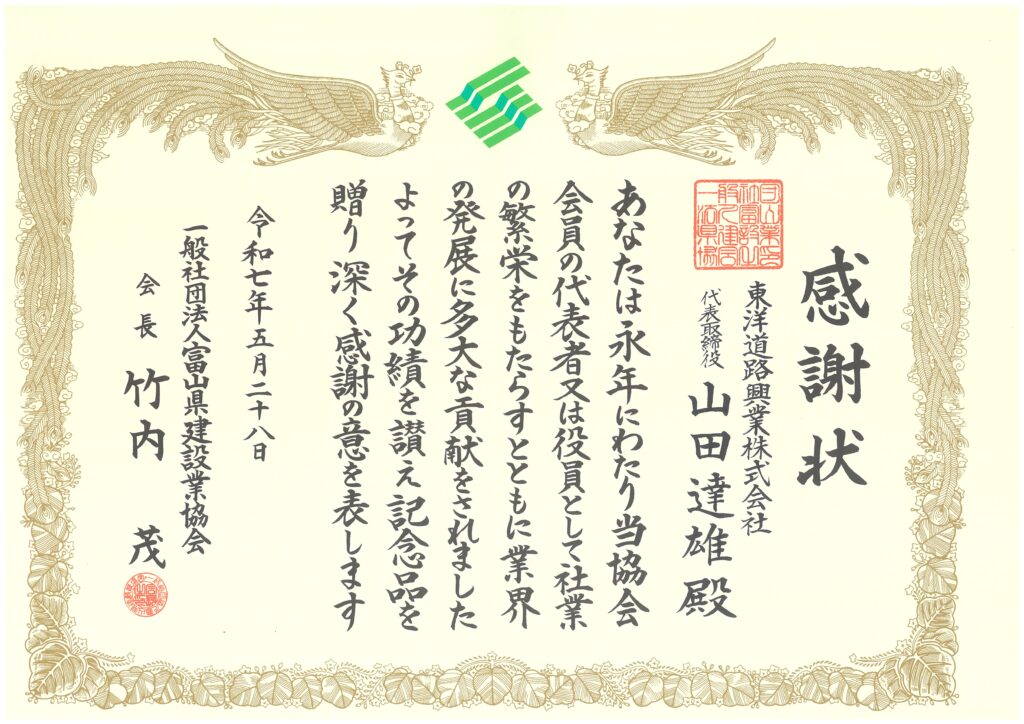 感謝状
東洋道路興業株式会社
代表取締役 山田達雄殿
あなたは永年にわたり当協会
会員の代表者又は役員として社業
の繁栄をもたらすとともに業界
の発展に多大な貢献をされました
よってその功績を讃え記念品を
贈り深く感謝の意を表します
令和七年五月二十八日
一般社団法人富山県建設業協会
会長 竹内 茂